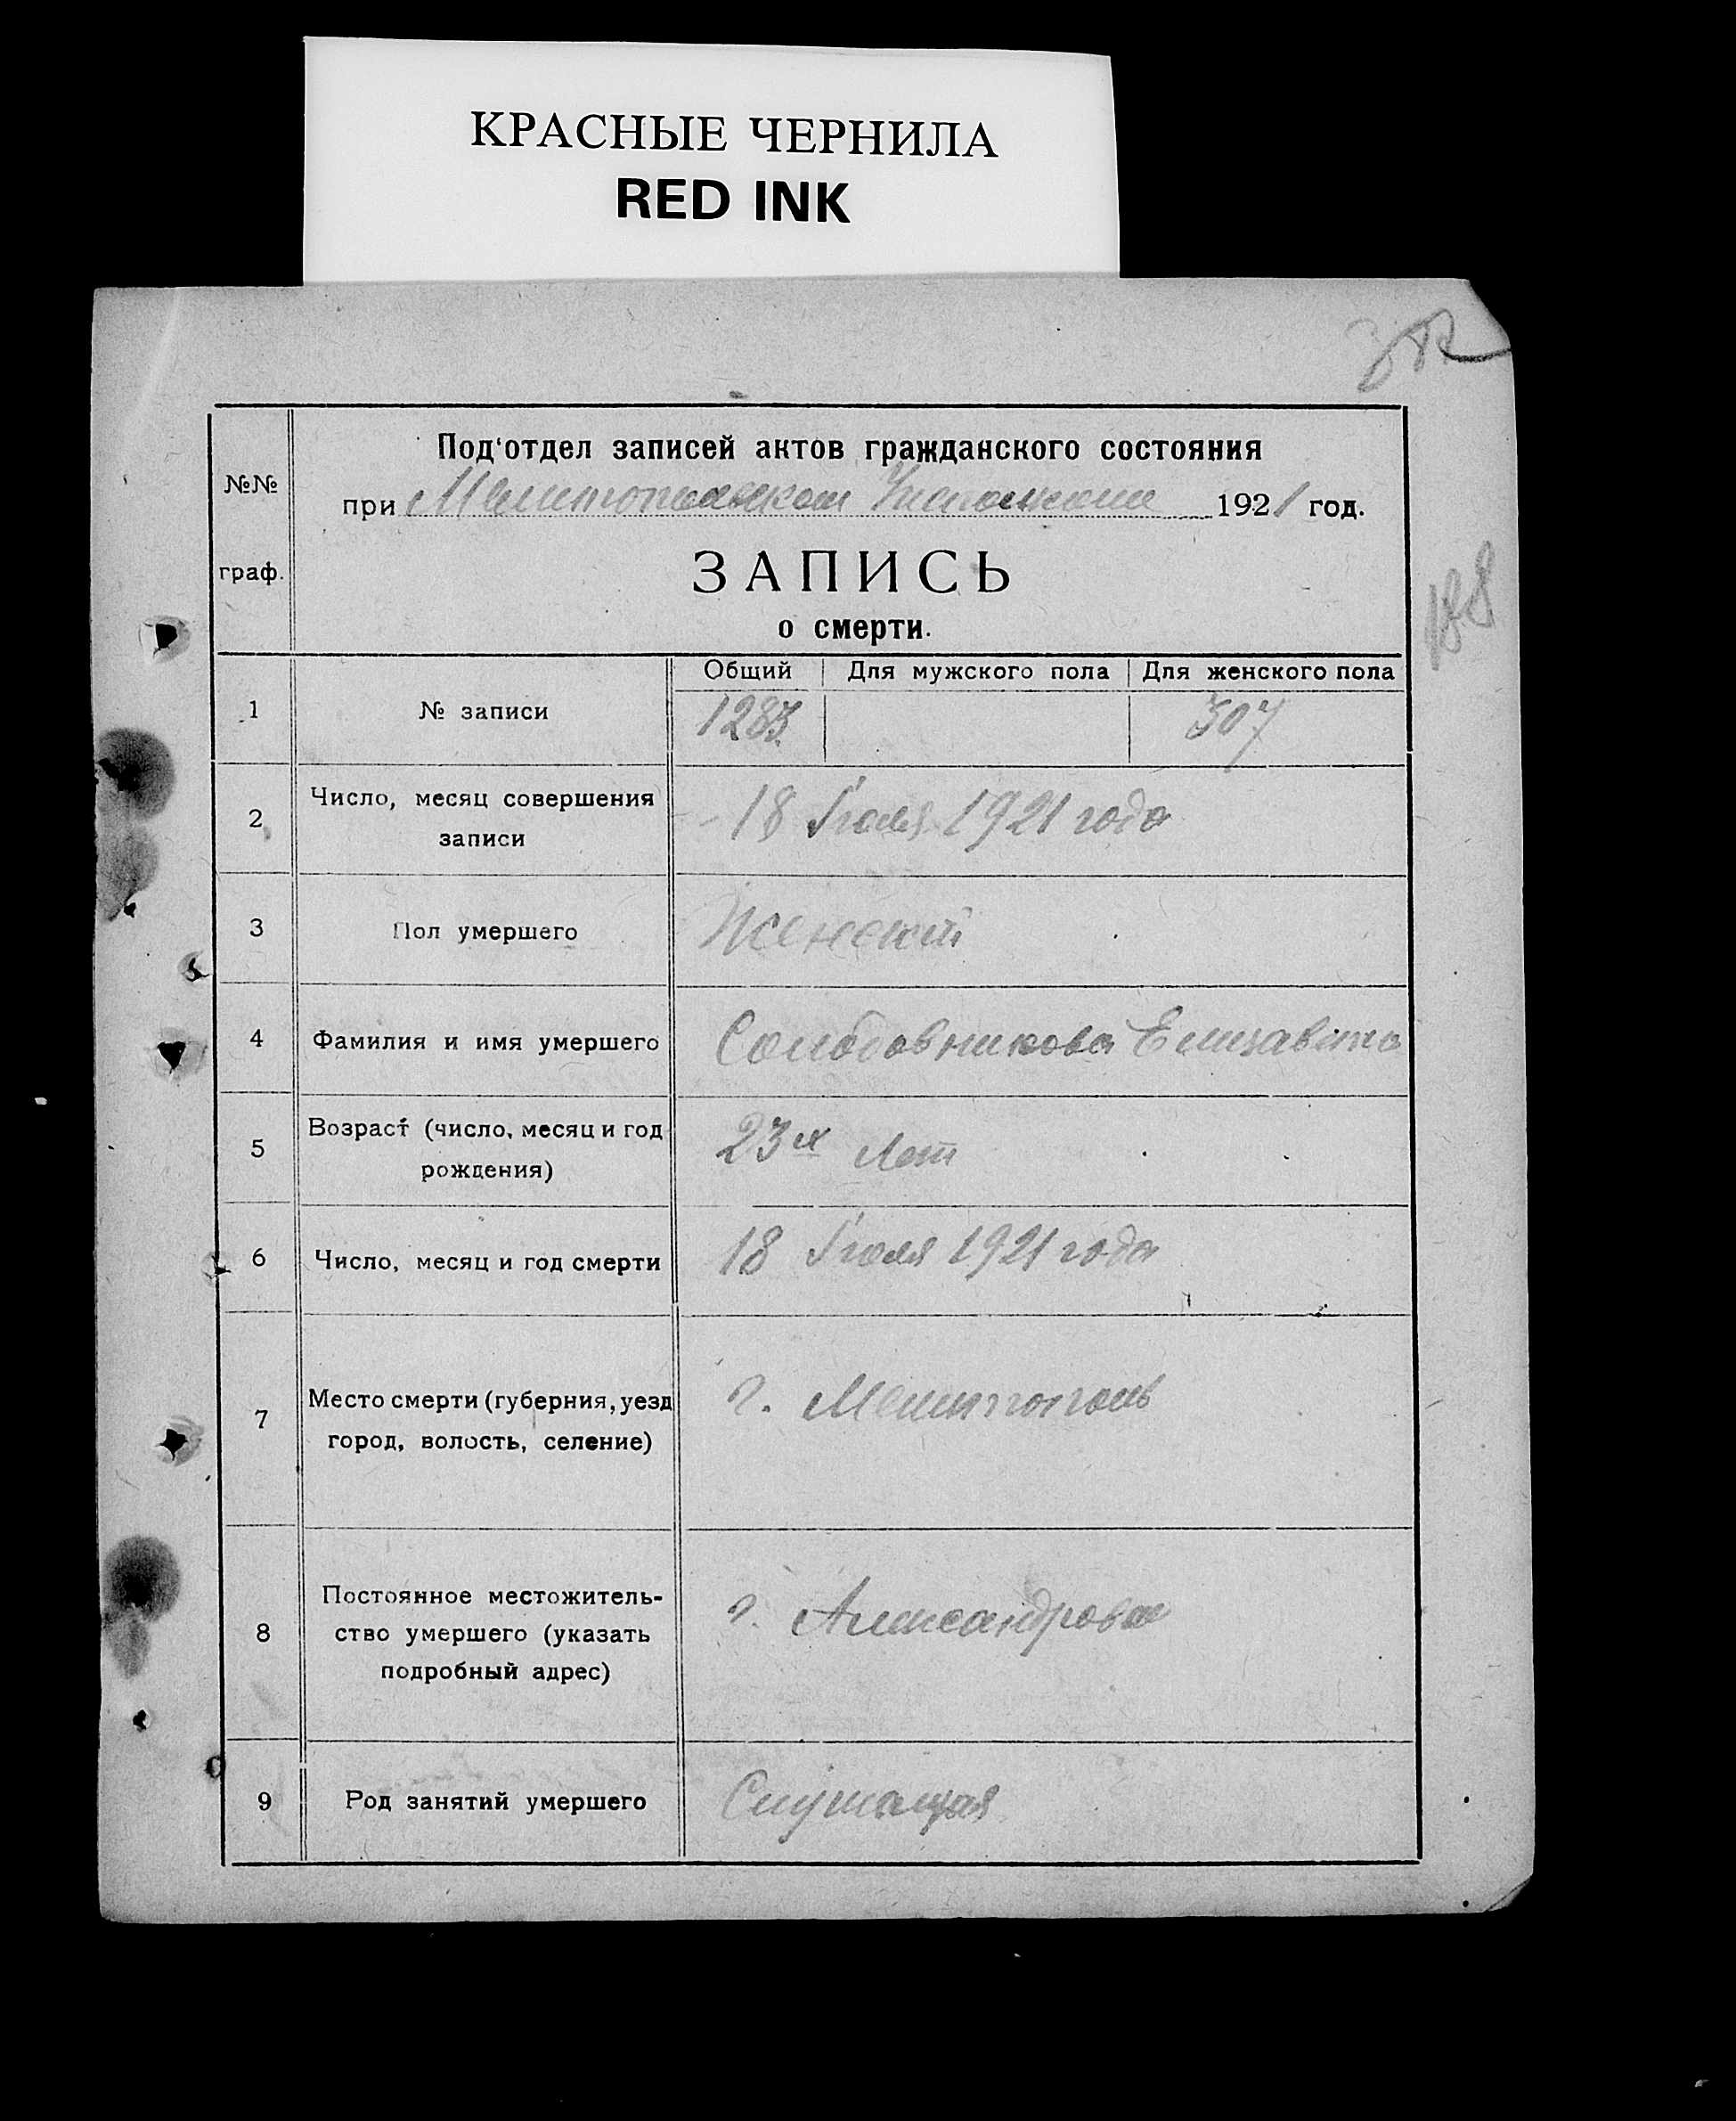 КРАСНЫЕ ЧЕРНИЛА
RED INK
Под'отдел записей актов гражданского состояния
при Мелитопольском 1921 год.
№№
граф.
ЗАПИСЬ
о смерти.
Общий Для мужского пола Для женского пола
1 № записи 1283 507
2 Число, месяц совершения
записи
18 Июля 1921 года
3 Пол умершего Женский
4 Фамилия и имя умершего Елизавета
5 Возраст (число, месяц и год
рождения)
23х лет
6 Число, месяц и год смерти 18 Июля 1921 года
7 Место смерти (губерния, уезд
город, волость, селение)
г. Мелитополь
8 Постоянное местожитель-
ство умершего (указать
подробный адрес)
г. Александровск
9 Род занятий умершего Служащая
188